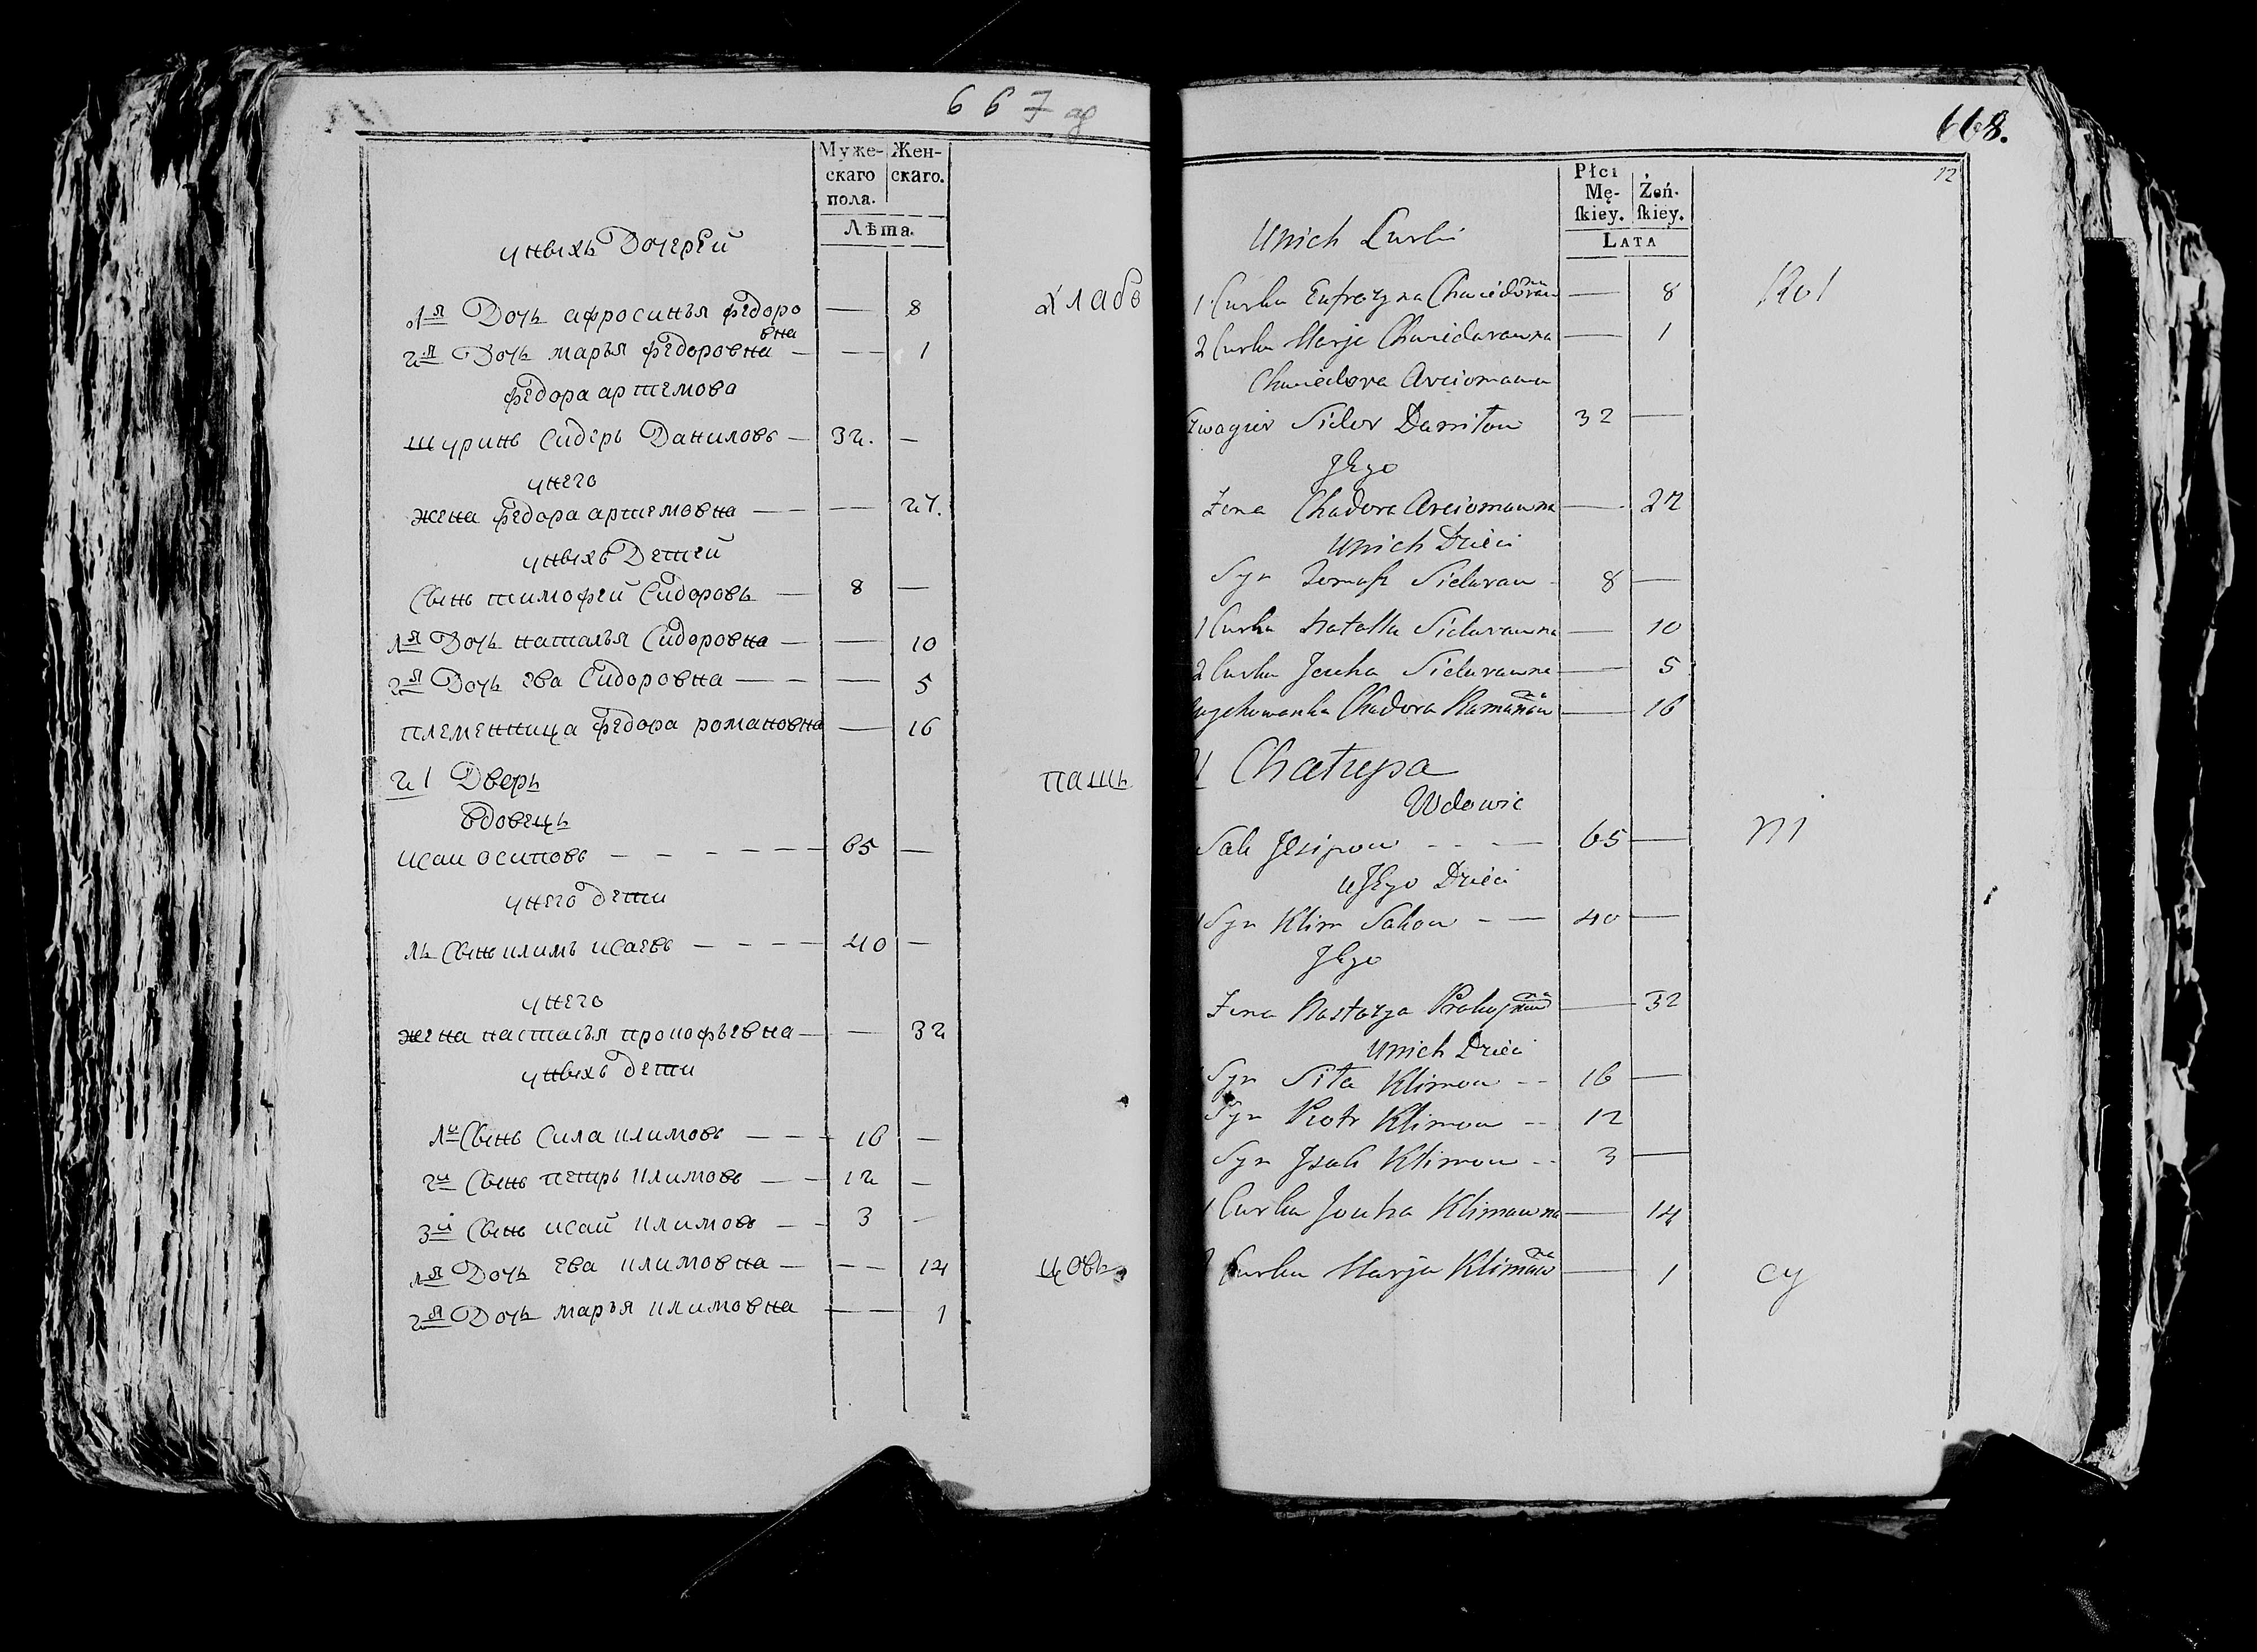 667 об
Муже- Жен-
скаго скаго.
пола.
Лѣта.
уныхъ Дочерей
1я Дочь афросинья федоро — 8 хлабо
вна
2я Дочь марья федоровна — — 1
федора артемова
шуринъ Сидеръ Даниловъ — 32. —
унего
жена федора артемовна — — — 27.
уныхъ Детей
Сынъ тимофей Сидоровъ — 8 —
1я Дочь наталья Сидоровна — — 10
2я Дочь ева Сидоровна — — — 5
племенница федора романовна — 16
21 Дверь пашь
вдовецъ
исаи осиповъ — — — — — — 65 —
унего дети
1ъ Сынъ климъ исаевъ — — — — 40 —
унего
жена настасья прокофьевна — — 32
уныхъ дети
1й Сынъ Сила климовъ — — — 16 —
2й Сынъ петръ климовъ — — 12 —
3й Сынъ исай климовъ — — 3 —
1я Дочь ева климовна — — — 14 цовъ
2я Дочь марья климовна — — 1
668.
12
Płci
Mę- Żeń-
ſkiey. ſkiey.
LATA
Unich Curki
1 Curka Eufrozyna Chwiedorawna — 8 Rol
2 Curka Marja Chwiedarawna — 1
Chwiedora Arciomawa
Szwagier Sidor Daniłow 32 —
Jego
Żona Chadora Arciomawna — 27
Unich Dzieci
Syn Sidaraw 8 —
1 Curka Natalla Sidarawna — 10
2 Curka Jeuha Sidarawna — 5
Chadora Ramanawna — 16
Chałupa
Wdowic
Jesipow - - — 65 — ni
uJego Dzieci
1 Syn Klim Sakow - — 40 —
Jego
Żona Nastazya — 32
Unich Dzieci
Syn Siła Klimow - - 16 —
Syn Piotr Klimow - - 12
Syn Jsak Klimow - - 3 —
1 Curka Jeuha Klimawna — 14
Curka Marja Klimawna — 1 cy